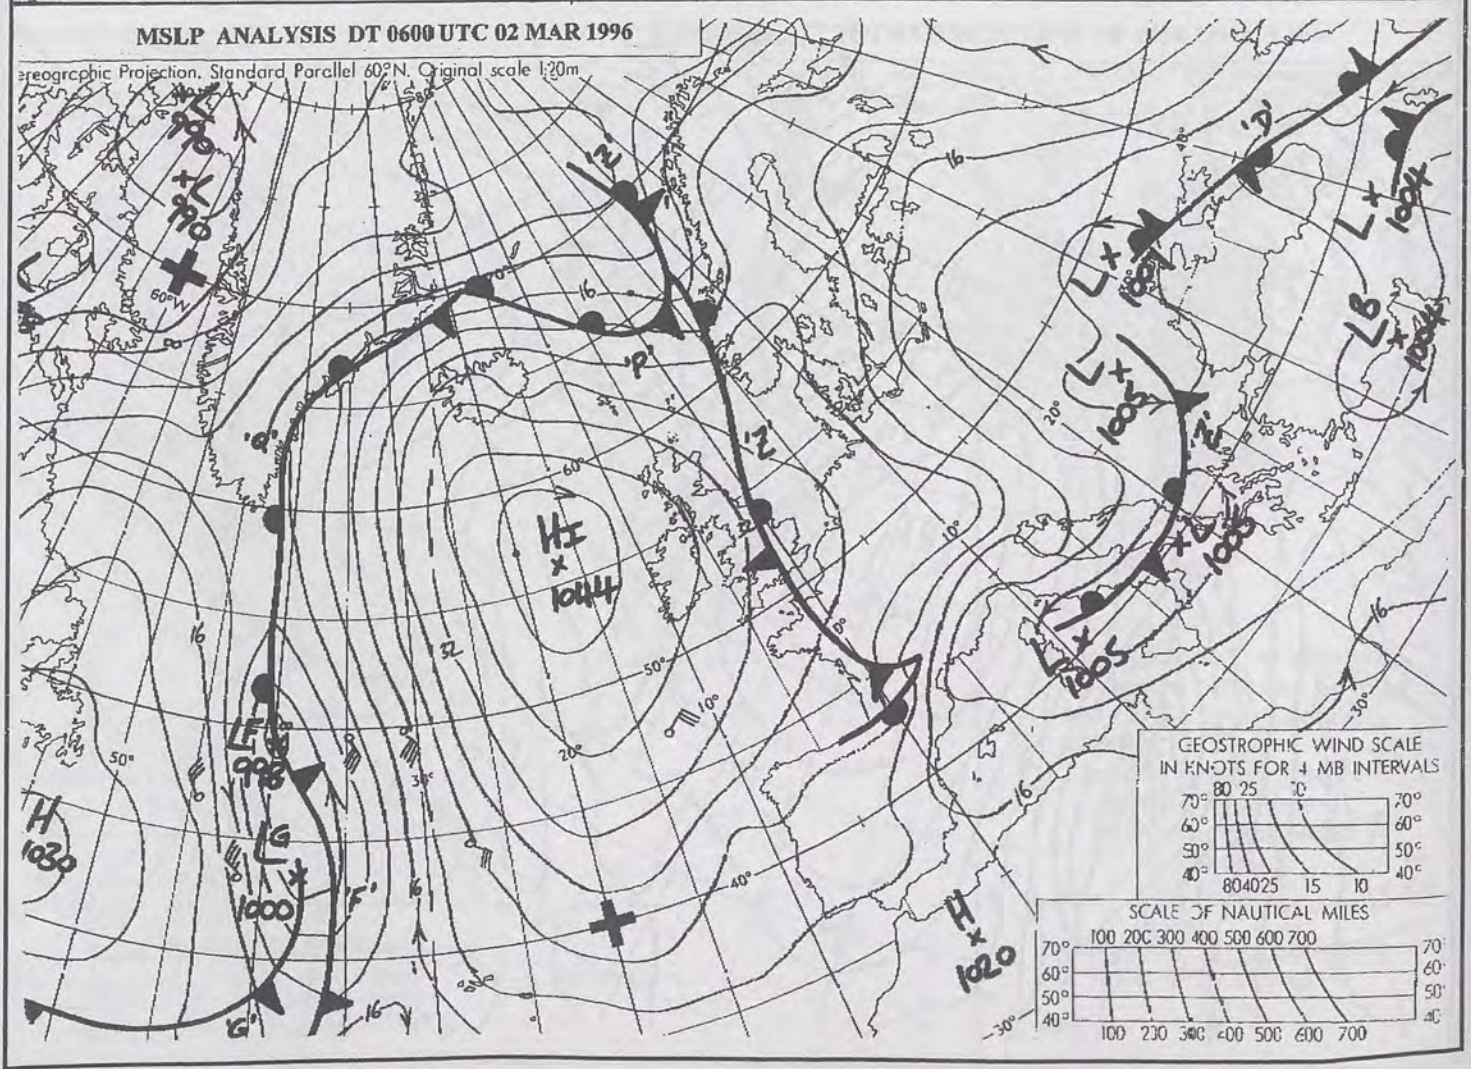 MSLP ANALYSIS DT 0600 UTC 02 MAR 1996
Stereographic Projection, Standard Parallel 60°N, Original scale 1:20m
L
990
L
990
60°W
80°
70°
'Z'
16
16
'D'
L
1004
L
1007
LB
1004
L
1005
'Z'
20°
10°
'P'
'Q'
'Z'
60°
HI
1044
L
1005
L
1005
16
16
32
50°
10°
20°
30°
50°
LF
996
H
1030
LG
1000
'F'
16
40°
16
H
1020
30°
30°
'G'
16
GEOSTROPHIC WIND SCALE
IN KNOTS FOR 4 MB INTERVALS
80 25 10
70° 70°
60° 60°
50° 50°
40° 40°
80 40 25 15 10
SCALE OF NAUTICAL MILES
100 200 300 400 500 600 700
70° 70°
60° 60°
50° 50°
40° 40
100 200 300 400 500 600 700